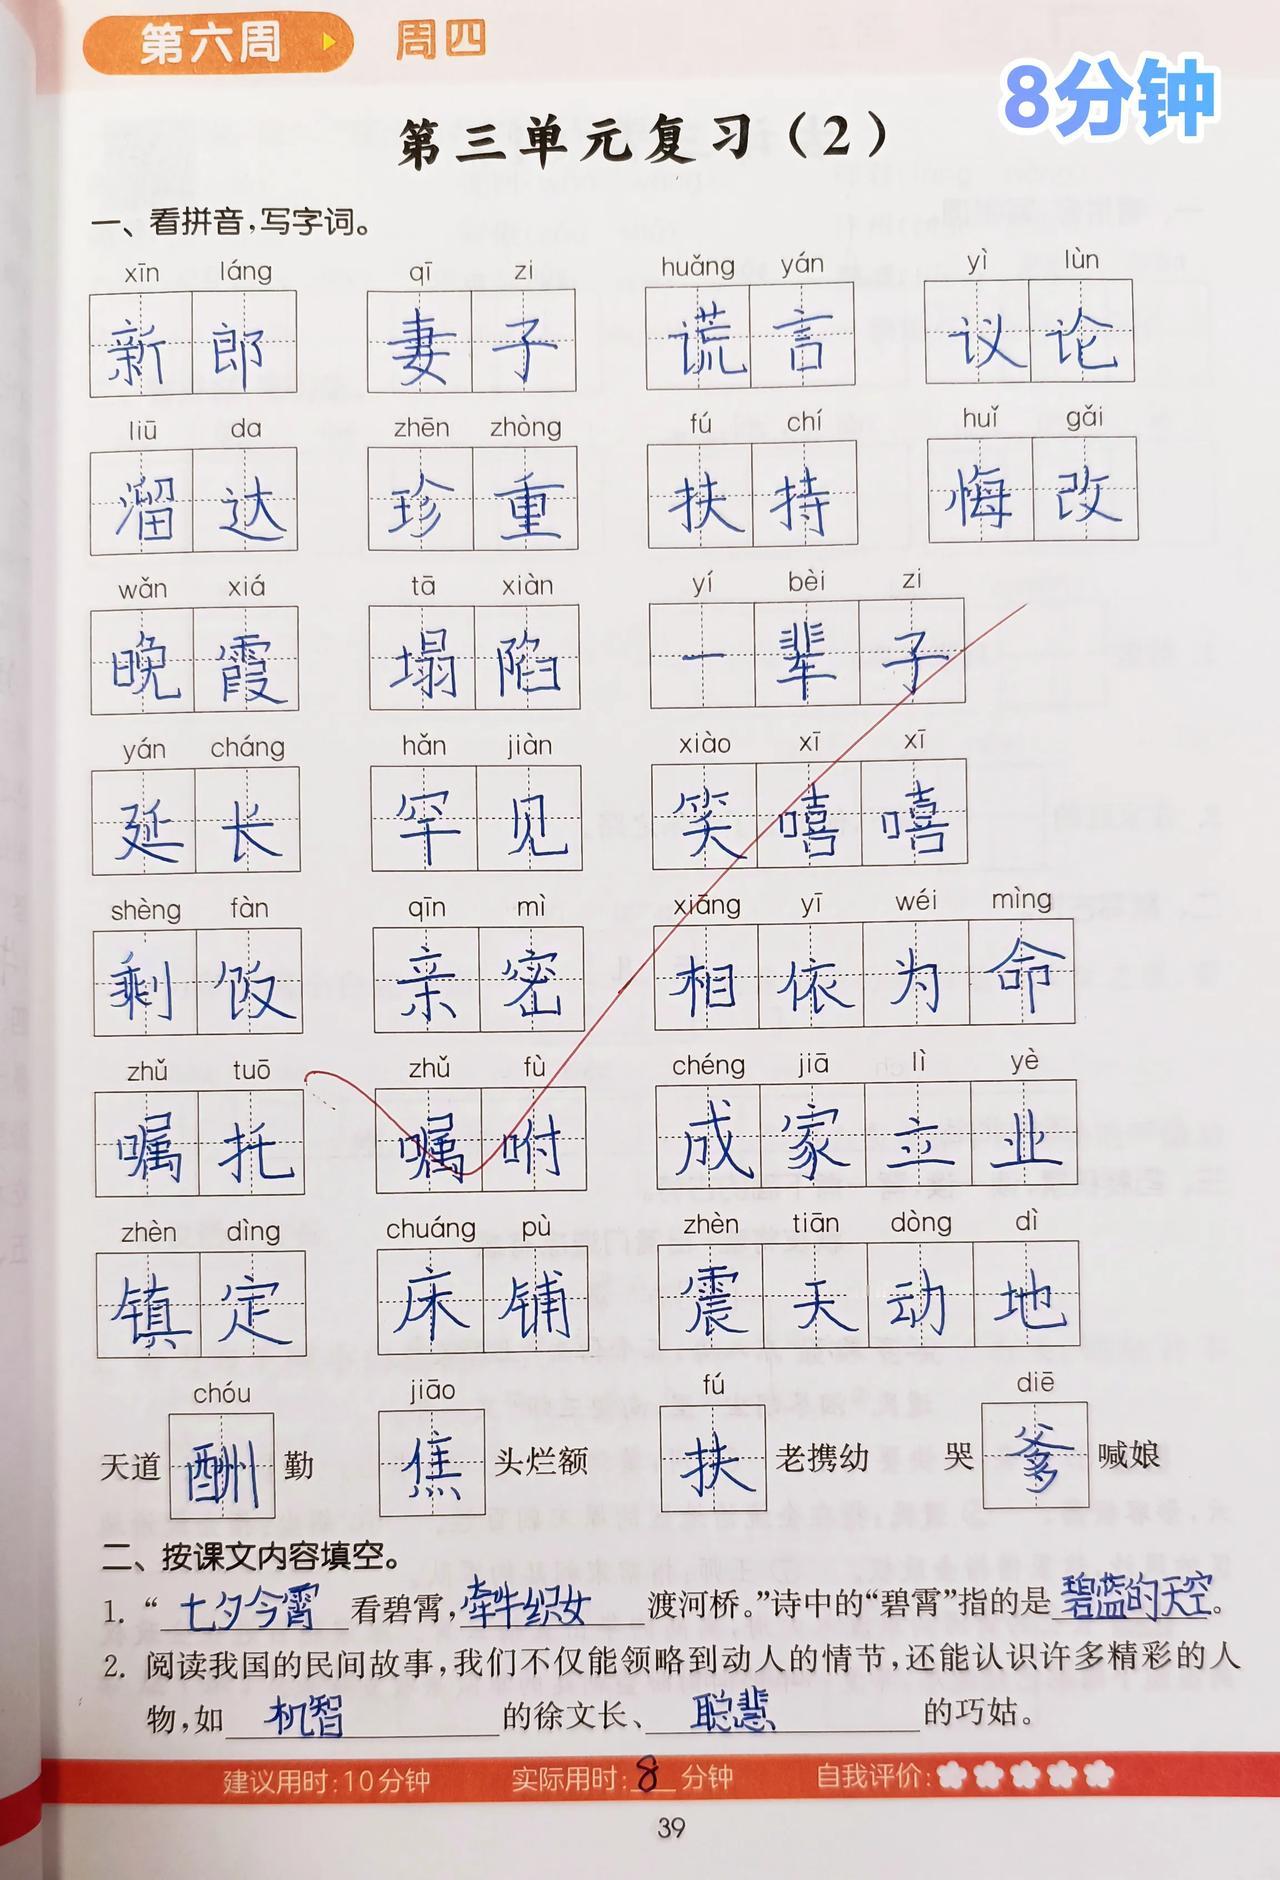 第六周 周四
8分钟
第三单元复习（2）
一、看拼音，写字词。
xīn láng qī zi huǎng yán yì lùn
新郎 妻子 谎言 议论
liū da zhēn zhòng fú chí huǐ gǎi
溜达 珍重 扶持 悔改
wǎn xiá tā xiàn yí bèi zi
晚霞 塌陷 一辈子
yán cháng hǎn jiàn xiào xī xī
延长 罕见 笑嘻嘻
shèng fàn qīn mì xiāng yī wéi mìng
剩饭 亲密 相依为命
zhǔ tuō zhǔ fù chéng jiā lì yè
嘱托 嘱咐 成家立业
zhèn dìng chuáng pù zhèn tiān dòng dì
镇定 床铺 震天动地
chóu jiāo fú diē
天道酬勤 焦头烂额 扶老携幼 哭爹喊娘
二、按课文内容填空。
1. “七夕今霄看碧霄，牵牛织女渡河桥。”诗中的“碧霄”指的是碧蓝的天空。
2. 阅读我国的民间故事，我们不仅能领略到动人的情节，还能认识许多精彩的人
物，如机智的徐文长、聪慧的巧姑。
建议用时：10分钟 实际用时：8分钟 自我评价：
39